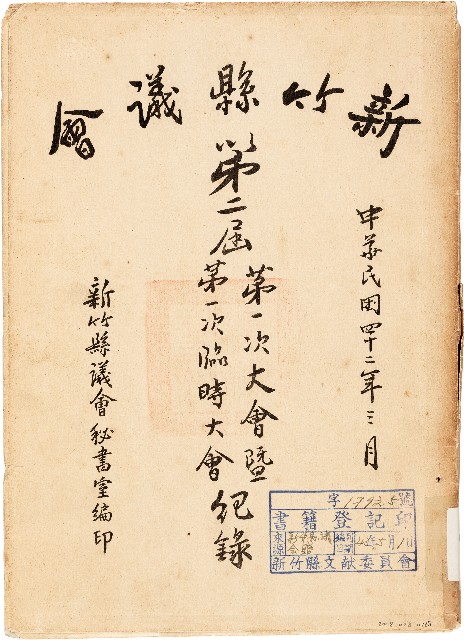 新竹縣議會
中華民國四十二年三月
第二屆
第一次大會暨
第一次臨時大會
紀錄
新竹縣議會秘書室編印
字1792.5號
書籍登記印
來源
新竹縣文献委員會